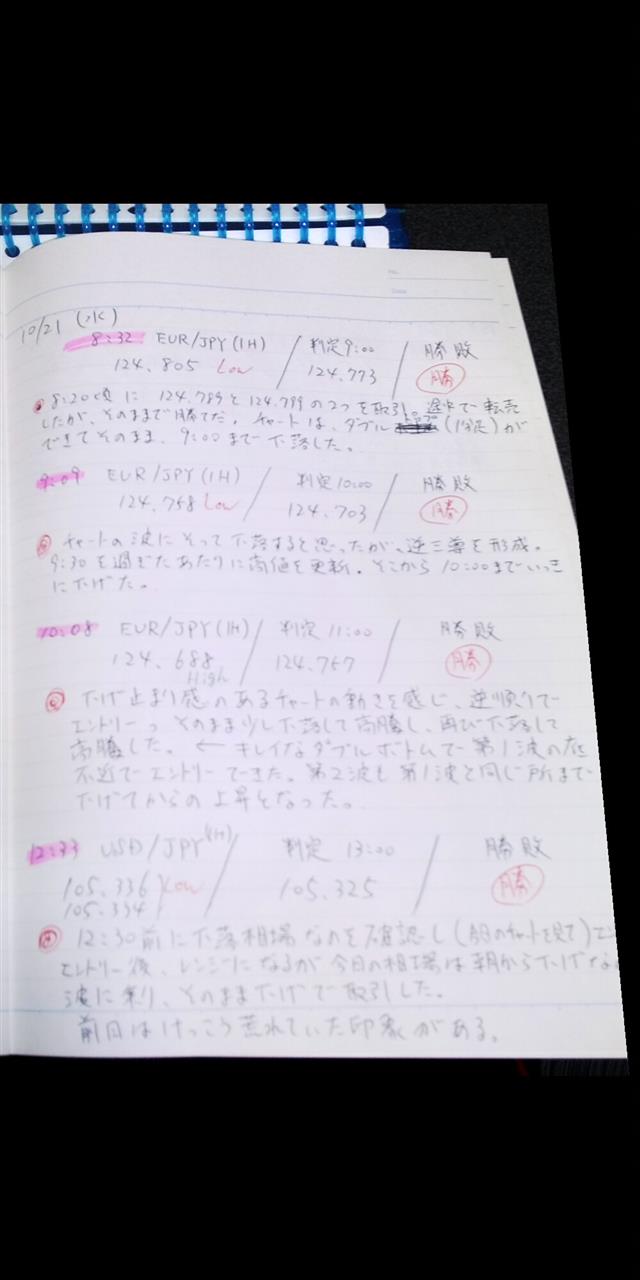 No.
Date
10/21 (水)
8:32 EUR/JPY (1H) / 判定9:00 / 勝敗
124.805 Low 124.773 勝
8:20頃に 124.789と124.799の2つを取引。途中で転売
したが、そのままで勝てた。チャートは、ダブルトップ(1分足)が
できてそのまま、9:00まで下落した。
9:09 EUR/JPY (1H) / 判定10:00 / 勝敗
124.758 Low 124.703 勝
チャートの波にそって下落すると思ったが、逆三尊を形成。
9:30を過ぎたあたりに高値を更新。そこから10:00までいっき
に下げた。
10:08 EUR/JPY (1H) / 判定11:00 / 勝敗
124.688 124.757 勝
High
下げ止まり感のあるチャートの動きを感じ、逆順りで
エントリー。そのまま少し下落して高騰し、再び下落して
高騰した。← キレイなダブルボトムで第1波の底
付近でエントリーできた。第2波も第1波と同じ所まで
下げてからの上昇となった。
12:33 USD/JPY (1H) / 判定 13:00 / 勝敗
105.336 Low 105.325 勝
105.334
12:30前に下落相場なのを確認し(今日のチャートを見て)エン
エントリー後、レンジになるが今日の相場は朝から下げ
波に乗り、そのまま下げで取引した。
前日はけっこう荒れていた印象がある。